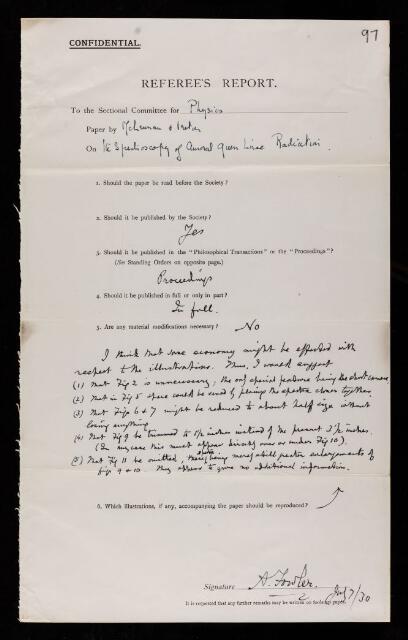 97
CONFIDENTIAL.
REFEREE'S REPORT.
To the Sectional Committee for Physics
Paper by McLennan &
On The Spectroscopy of Auroral Green Line Radiation.
1. Should the paper be read before the Society?
2. Should it be published by the Society?
Yes
3. Should it be published in the "Philosophical Transactions" or the "Proceedings"?
(See Standing Orders on opposite page.)
Proceedings
4. Should it be published in full or only in part?
In full.
5. Are any material modifications necessary? No
I think that some economy might be afforded with
respect to the illustrations. Thus, I would suggest
(1) That Fig 2 is unnecessary, the only special feature being the short camera
(2) That in Fig 5 space could be saved by placing the spectra closer together.
(3) That Figs 6 & 7 might be reduced to about half size without
losing anything
(4) That Fig 9 be trimmed to inches instead of the present 3 1/2 inches.
(In any case this must appear directly over or under Fig 10).
(5) That Fig 11 be omitted, there being merely still greater enlargements of
figs 9 & 10. They appear to give no additional information.
6. Which illustrations, if any, accompanying the paper should be reproduced?
Signature A. Fowler.
July 7/30
It is requested that any further remarks may be written on foolscap paper.